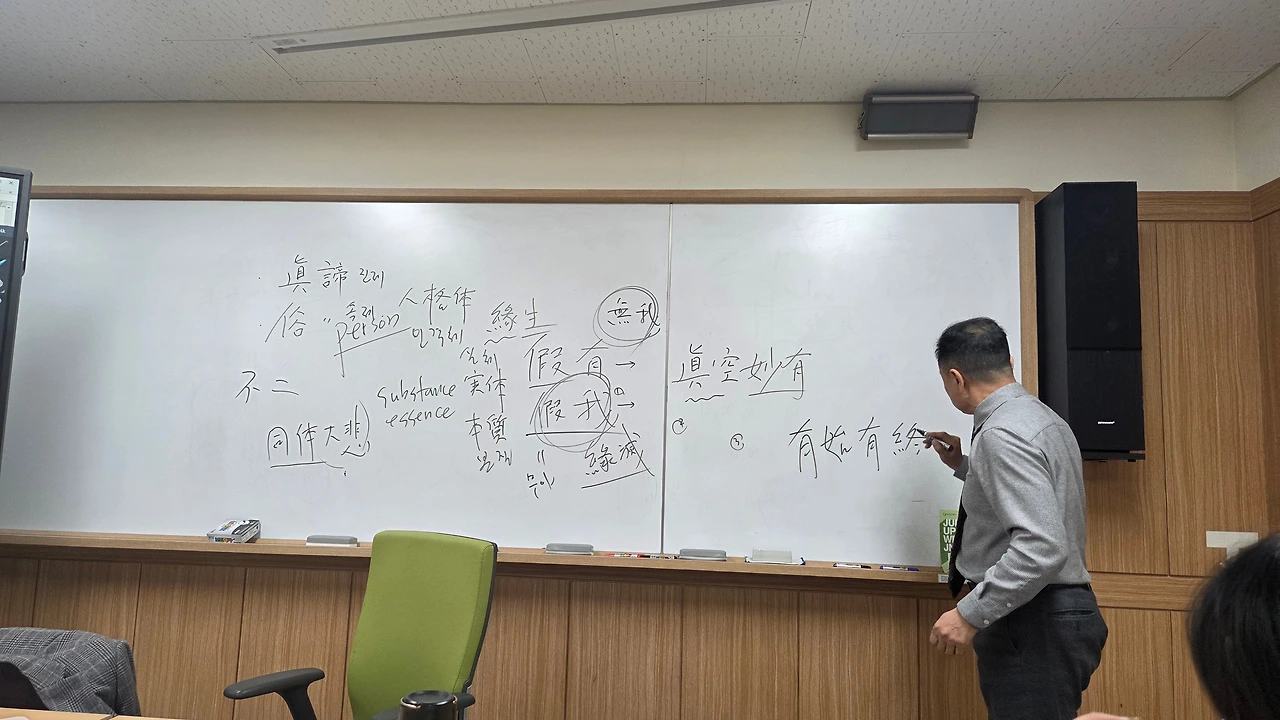 · 眞諦 진제
· 俗 〃 속제
person 人格体
인격체
緣生
無我
不二
同体大悲
substance 実体
실체
essence
本質
본질
假有 →
假我 →
॥
무아
緣滅
眞空妙有
②
①
有始有終
JU
UP